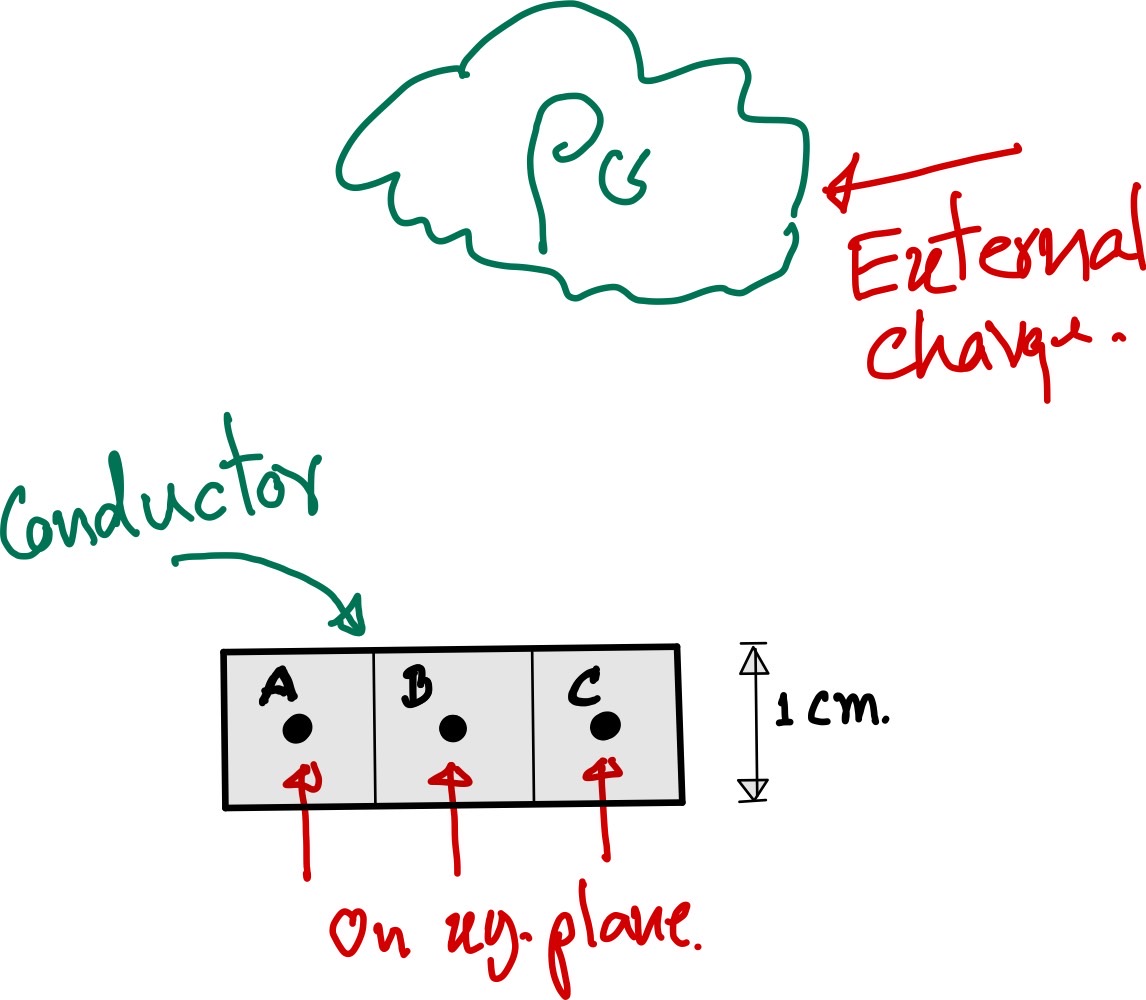 ρG
External
charge.
Conductor
A B C
1 cm.
On xy-plane.